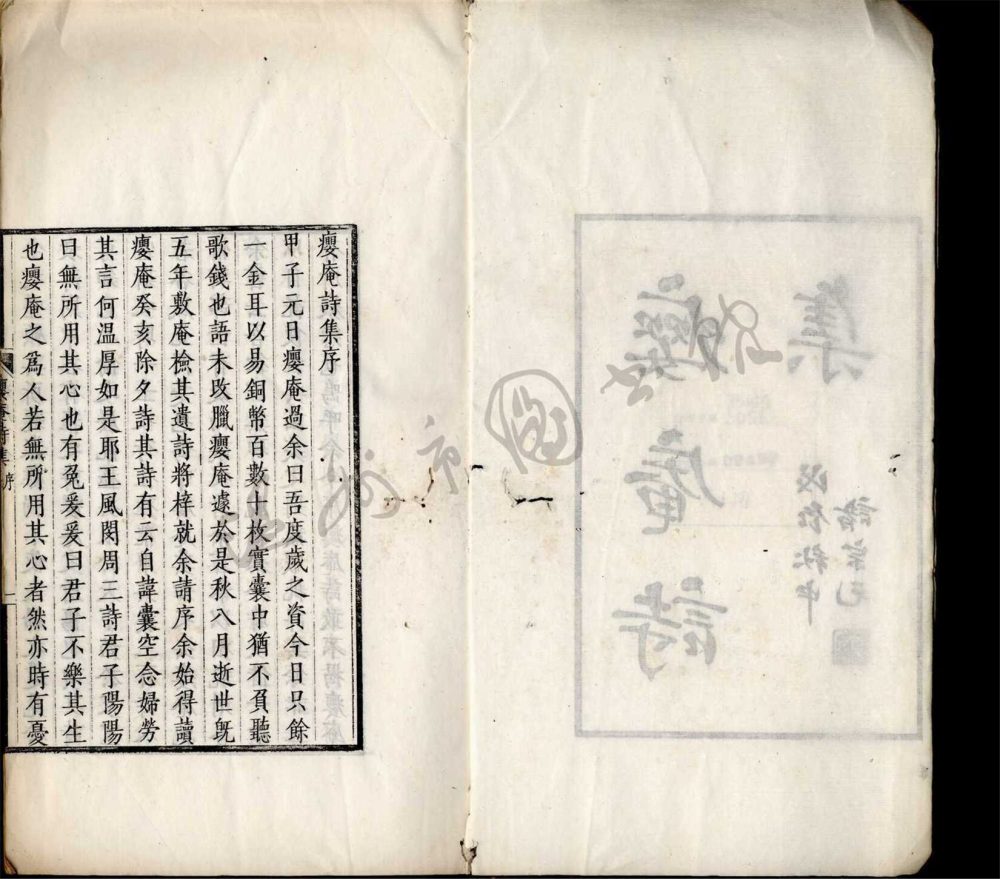 癭庵詩集序
甲子元日癭庵過余曰吾度歲之資今日只餘
一金耳以易銅幣百數十枚實囊中猶不負聽
歌錢也語未旣臘癭庵遽於是秋八月逝世旣
五年敷庵檢其遺詩將梓就余請序余始得讀
癭庵癸亥除夕詩其詩有云自諱囊空念婦勞
其言何温厚如是耶王風閔周三詩君子陽陽
曰無所用其心也有兔爰爰曰君子不樂其生
也癭庵之爲人若無所用其心者然亦時有憂
癭庵詩集 序 一
癭庵詩
集
戊辰秋中
諸宗元